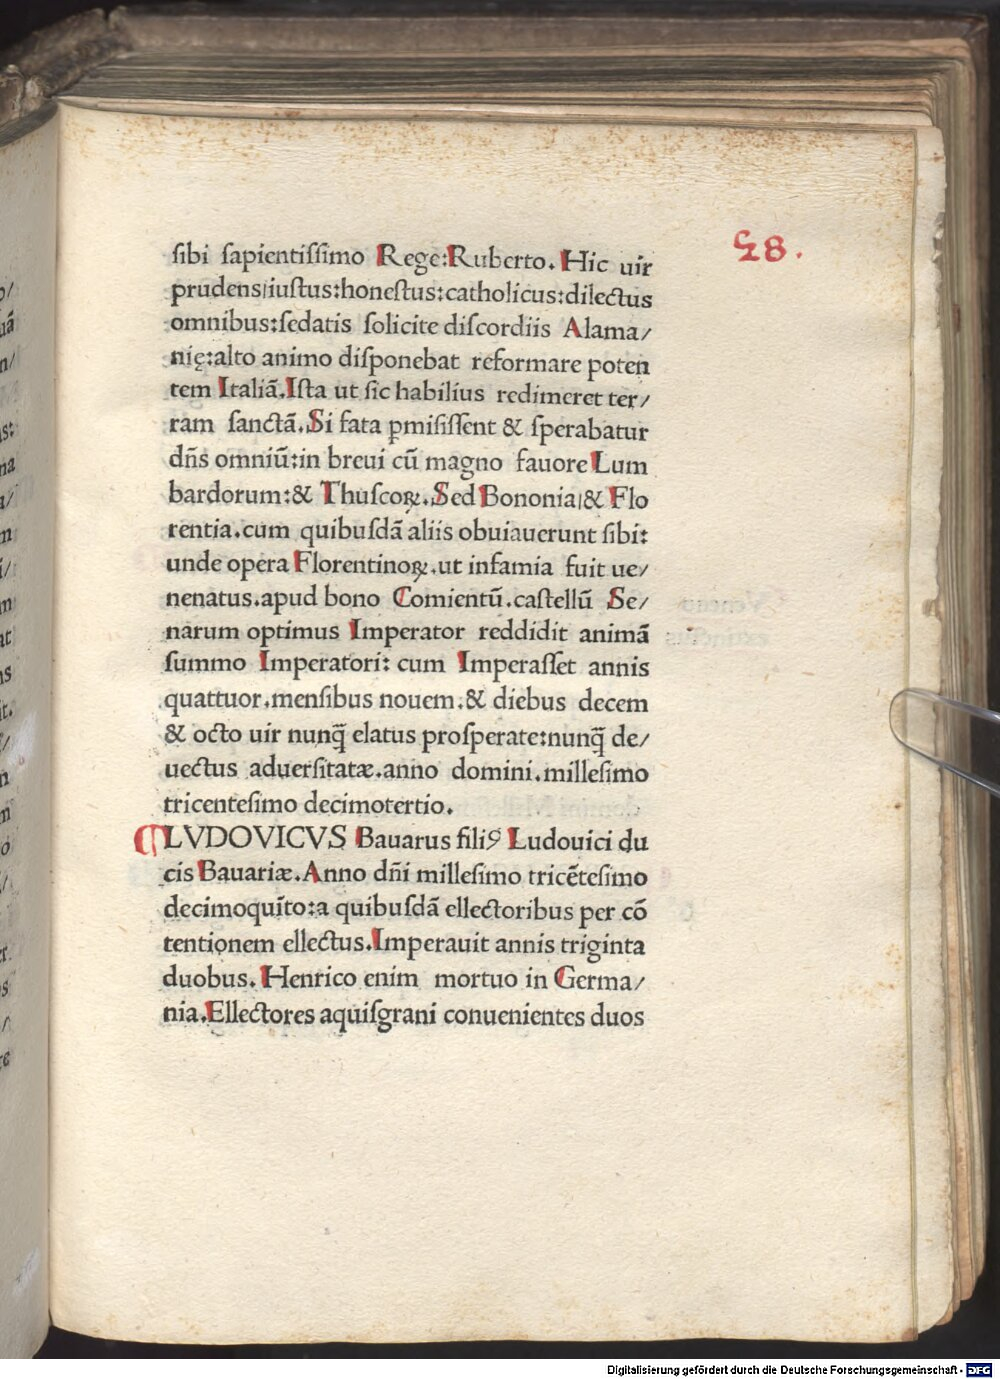 58.
sibi sapientissimo Rege:Ruberto. Hic uir
prudens/iustus:honestus:catholicus:dilectus
omnibus:sedatis solicite discordiis Alama/
nię:alto animo disponebat reformare poten
tem Italiã.Ista ut sic habilius redimeret ter/
ram sanctã.Si fata ꝑmisissent & sperabatur
dñs omniũ:in breui cũ magno fauore Lum
bardorum:& Thuscoꝝ.Sed Bononia/& Flo
rentia.cum quibusdã aliis obuiauerunt sibi:
unde opera Florentinoꝝ.ut infamia fuit ue/
nenatus.apud bono Comientũ.castellũ Se/
narum optimus Imperator reddidit animã
summo Imperatori: cum Imperasset annis
quattuor.mensibus nouem.& diebus decem
& octo uir nunq̃ elatus prosperate:nunq̃ de/
uectus aduersitatæ.anno domini.millesimo
tricentesimo decimotertio.
¶LVDOVICVS Bauarus filiꝰ Ludouici du
cis Bauariæ.Anno dñi millesimo tricẽtesimo
decimoquĩto:a quibusdã ellectoribus per cõ
tentionem ellectus.Imperauit annis triginta
duobus. Henrico enim mortuo in Germa/
nia.Ellectores aquisgrani conuenientes duos
Digitalisierung gefördert durch die Deutsche Forschungsgemeinschaft - DFG